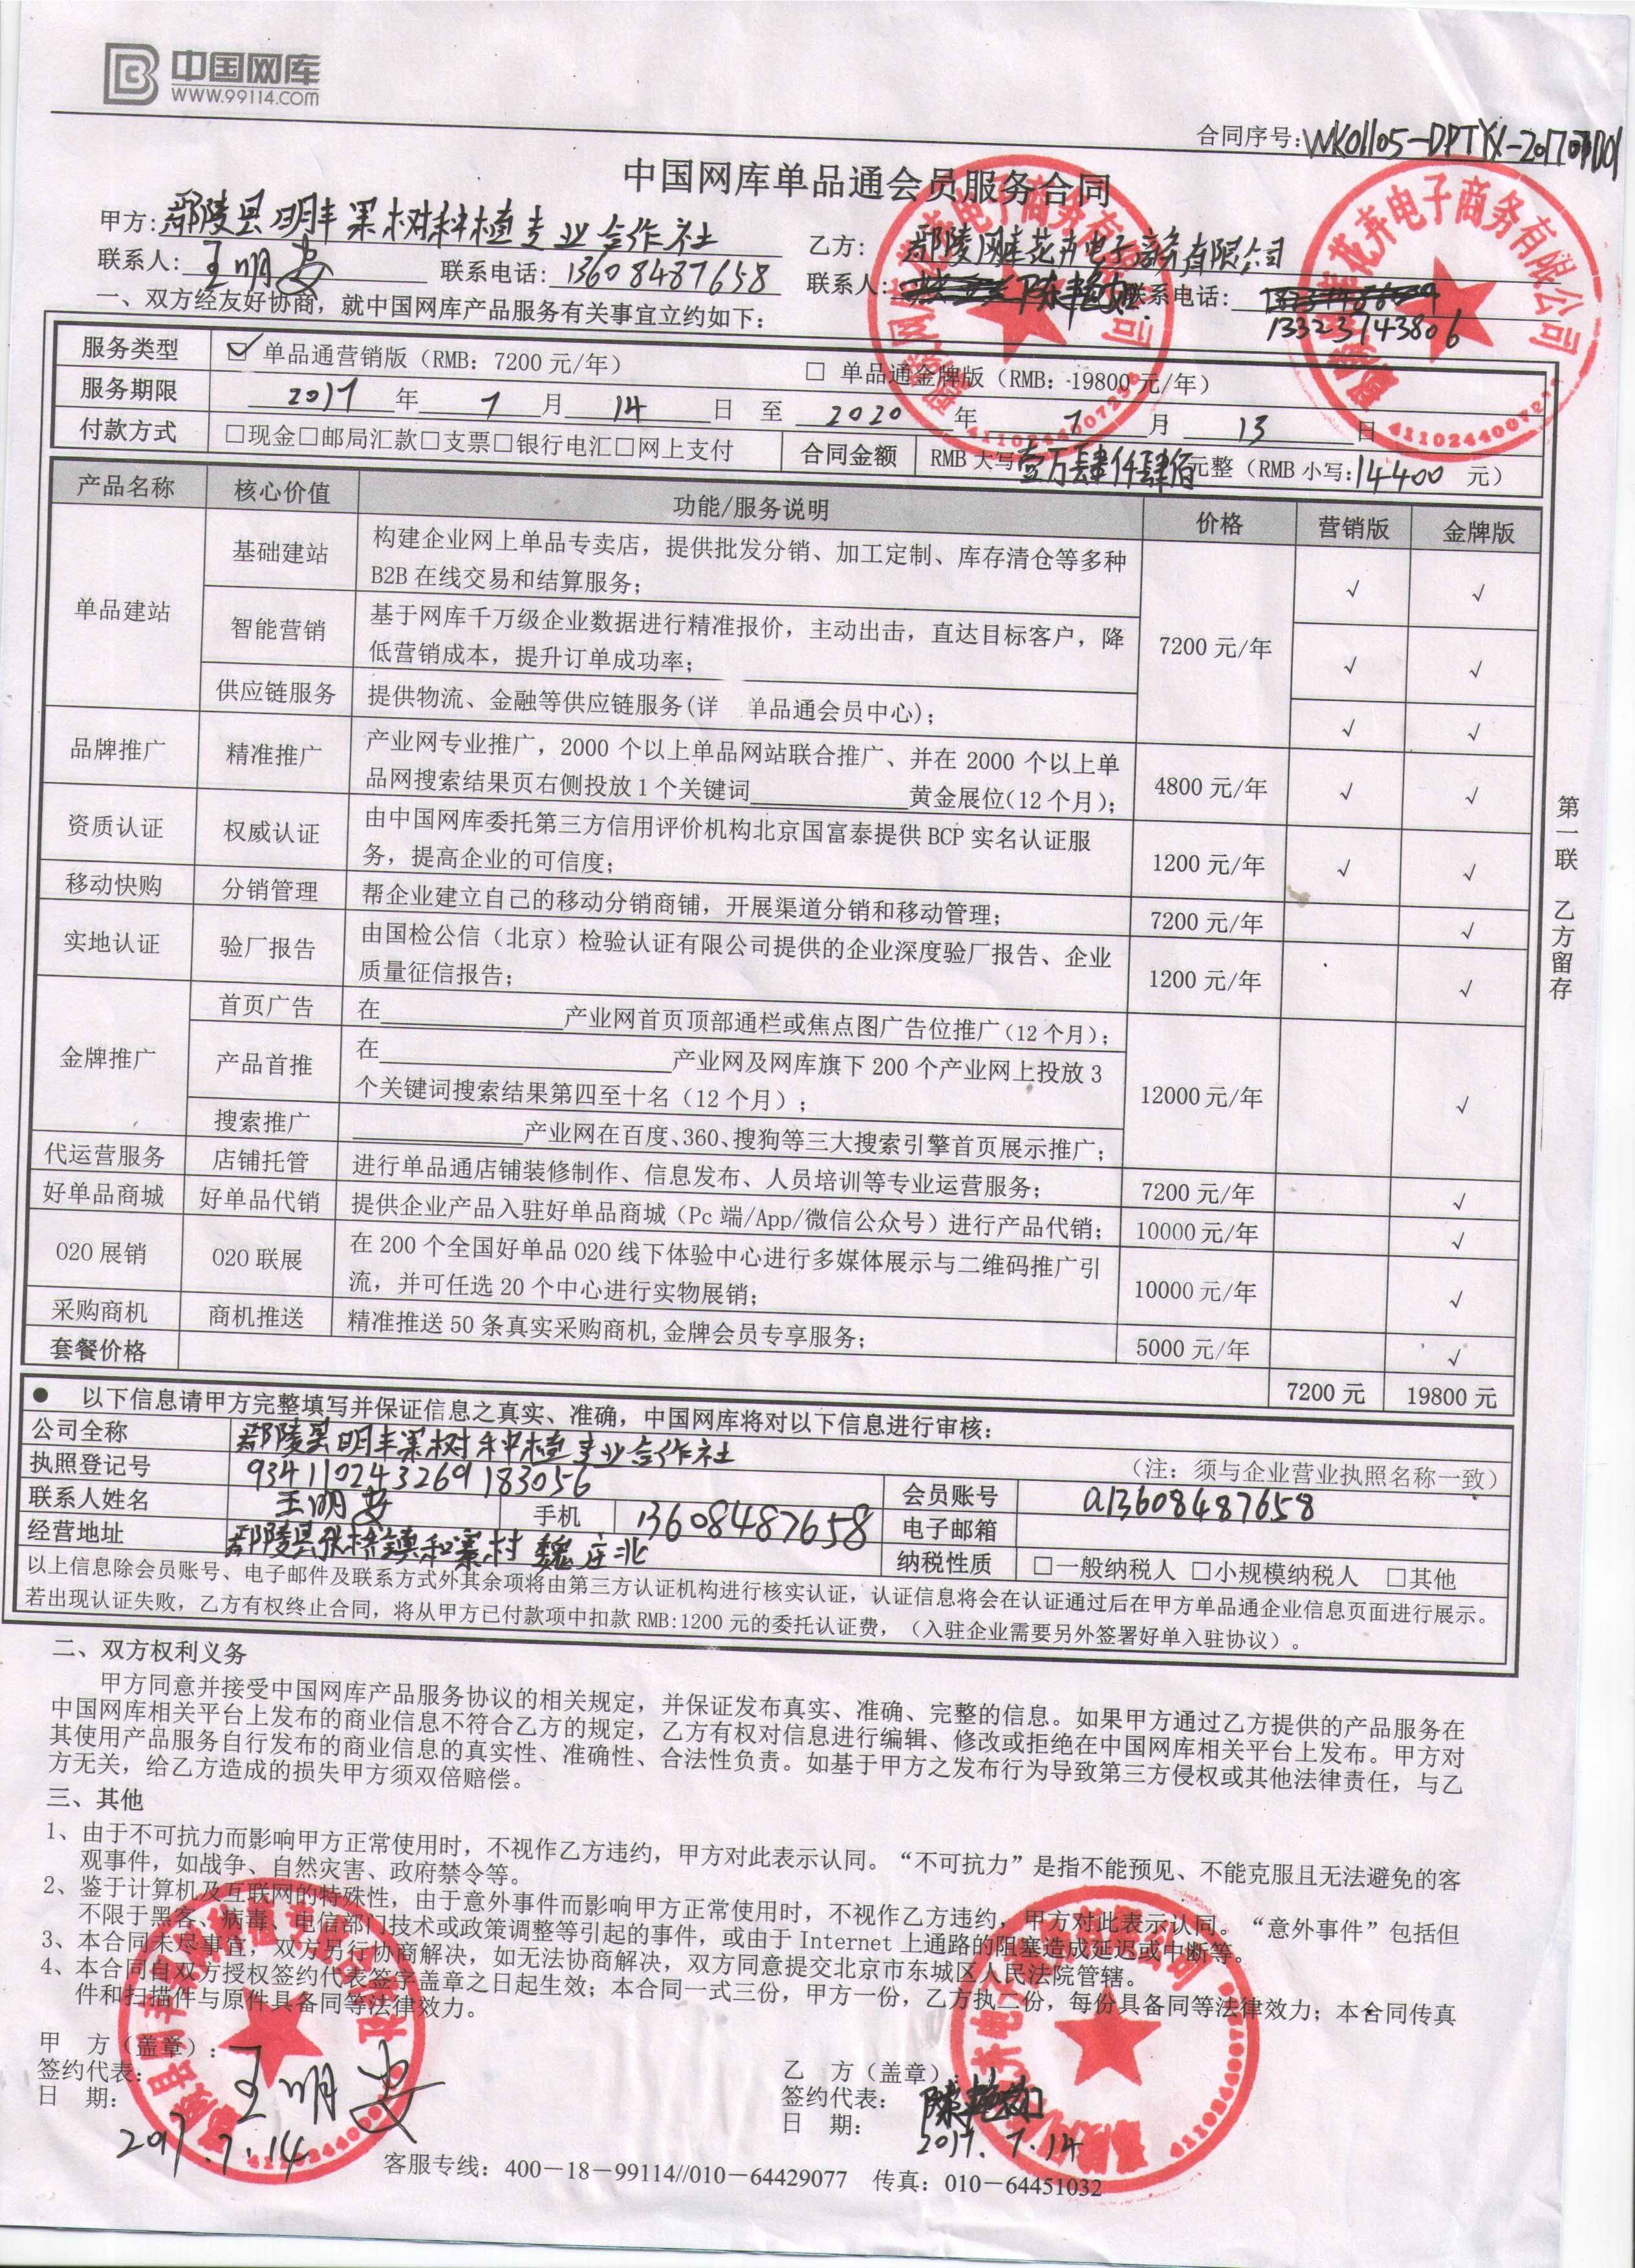 中国网库
WWW.99114.COM
合同序号:WK01105-DPTYX-20170
中国网库单品通会员服务合同
甲方:鄢陵县明丰果树种植专业合作社
乙方: 鄢陵网库花卉电子商务有限公司
联系人:王明安 联系电话:13608487658
联系人: 陈艳 联系电话:
13323743806
一、双方经友好协商，就中国网库产品服务有关事宜立约如下：
服务类型 ☑ 单品通营销版（RMB：7200 元/年） □ 单品通金牌版（RMB：19800 元/年）
服务期限 2017 年 7 月 14 日 至 2020 年 7 月 13 日
付款方式 □现金□邮局汇款□支票□银行电汇□网上支付 合同金额 RMB 大写壹万肆仟肆佰元整（RMB 小写:14400 元）
产品名称 核心价值 功能/服务说明 价格 营销版 金牌版
单品建站 基础建站 构建企业网上单品专卖店，提供批发分销、加工定制、库存清仓等多种
B2B 在线交易和结算服务； √ √
智能营销 基于网库千万级企业数据进行精准报价，主动出击，直达目标客户，降
低营销成本，提升订单成功率； 7200 元/年 √ √
供应链服务 提供物流、金融等供应链服务(详 单品通会员中心)； √ √
品牌推广 精准推广 产业网专业推广，2000 个以上单品网站联合推广、并在 2000 个以上单
品网搜索结果页右侧投放 1 个关键词 黄金展位(12 个月)； 4800 元/年 √ √
资质认证 权威认证 由中国网库委托第三方信用评价机构北京国富泰提供 BCP 实名认证服
务，提高企业的可信度； 1200 元/年 √ √
移动快购 分销管理 帮企业建立自己的移动分销商铺，开展渠道分销和移动管理； 7200 元/年 √
实地认证 验厂报告 由国检公信（北京）检验认证有限公司提供的企业深度验厂报告、企业
质量征信报告； 1200 元/年 √
金牌推广 首页广告 在 产业网首页顶部通栏或焦点图广告位推广(12 个月)；
产品首推 在 产业网及网库旗下 200 个产业网上投放 3
个关键词搜索结果第四至十名（12 个月）； 12000 元/年 √
搜索推广 产业网在百度、360、搜狗等三大搜索引擎首页展示推广；
代运营服务 店铺托管 进行单品通店铺装修制作、信息发布、人员培训等专业运营服务； 7200 元/年 √
好单品商城 好单品代销 提供企业产品入驻好单品商城（Pc 端/App/微信公众号）进行产品代销； 10000 元/年 √
O2O 展销 O2O 联展 在 200 个全国好单品 O2O 线下体验中心进行多媒体展示与二维码推广引
流，并可任选 20 个中心进行实物展销； 10000 元/年 √
采购商机 商机推送 精准推送 50 条真实采购商机,金牌会员专享服务； 5000 元/年 √
套餐价格 7200 元 19800 元
第一联 乙方留存
● 以下信息请甲方完整填写并保证信息之真实、准确，中国网库将对以下信息进行审核：
公司全称 鄢陵县明丰果树种植专业合作社 （注：须与企业营业执照名称一致）
执照登记号 93411024326918305 6 会员账号 a13608487658
联系人姓名 王明安 手机 13608487658 电子邮箱
经营地址 鄢陵县张桥镇和寨村 魏庄北 纳税性质 □一般纳税人 □小规模纳税人 □其他
以上信息除会员账号、电子邮件及联系方式外其余项将由第三方认证机构进行核实认证，认证信息将会在认证通过后在甲方单品通企业信息页面进行展示。
若出现认证失败，乙方有权终止合同，将从甲方已付款项中扣款 RMB:1200 元的委托认证费，（入驻企业需要另外签署好单入驻协议）。
二、双方权利义务
甲方同意并接受中国网库产品服务协议的相关规定，并保证发布真实、准确、完整的信息。如果甲方通过乙方提供的产品服务在
中国网库相关平台上发布的商业信息不符合乙方的规定，乙方有权对信息进行编辑、修改或拒绝在中国网库相关平台上发布。甲方对
其使用产品服务自行发布的商业信息的真实性、准确性、合法性负责。如基于甲方之发布行为导致第三方侵权或其他法律责任，与乙
方无关，给乙方造成的损失甲方须双倍赔偿。
三、其他
1、由于不可抗力而影响甲方正常使用时，不视作乙方违约，甲方对此表示认同。“不可抗力”是指不能预见、不能克服且无法避免的客
观事件，如战争、自然灾害、政府禁令等。
2、鉴于计算机及互联网的特殊性，由于意外事件而影响甲方正常使用时，不视作乙方违约，甲方对此表示认同。“意外事件”包括但
不限于黑客、病毒、电信部门技术或政策调整等引起的事件，或由于 Internet 上通路的阻塞造成延迟或中断等。
3、本合同未尽事宜，双方另行协商解决，如无法协商解决，双方同意提交北京市东城区人民法院管辖。
4、本合同自双方授权签约代表签字盖章之日起生效；本合同一式三份，甲方一份，乙方执二份，每份具备同等法律效力；本合同传真
件和扫描件与原件具备同等法律效力。
甲 方（盖章）：
签约代表: 王明安
日 期: 2017.7.14
乙 方（盖章）:
签约代表: 陈艳
日 期: 2017.7.14
客服专线：400－18－99114//010－64429077 传真：010－64451032